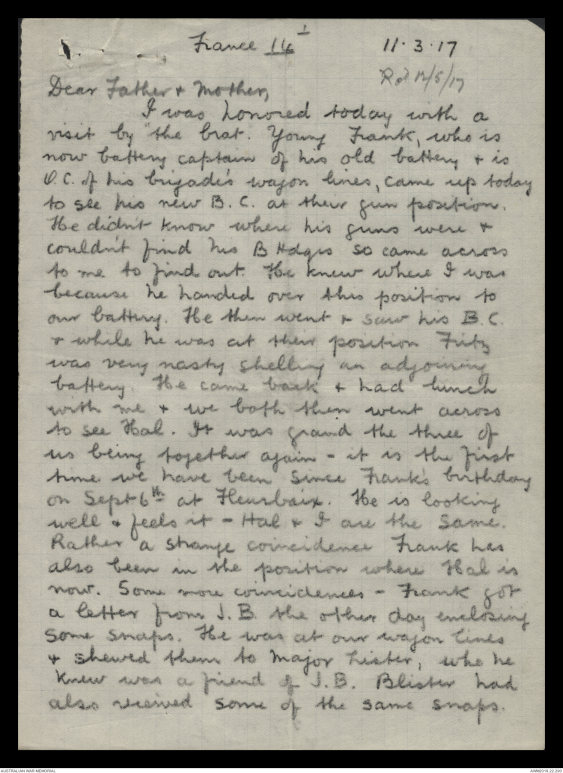 France 14 1
11.3.17
Rcd 12/5/17
Dear Father & Mother,
I was honored today with a
visit by "the brat. Young Frank, who is
now battery captain of his old battery & is
O.C. of his brigade's wagon lines, came up today
to see his new B.C. at their gun position.
He didn't know where his guns were &
couldn't find his B Hdqrs so came across
to me to find out. He knew where I was
because he handed over this position to
our battery. He then went & saw his B.C.
& while he was at their position Fritz
was very nasty shelling an adjoining
battery. He came back & had lunch
with me & we both then went across
to see Hal. It was grand the three of
us being together again - it is the first
time we have been since Frank's birthday
on Sept 6th at Fleurbaix. He is looking
well & feels it - Hal & I are the same.
Rather a strange coincidence Frank has
also been in the position where Hal is
now. Some more coincidences - Frank got
a letter from J.B. the other day enclosing
some snaps. He was at our wagon lines
& shewed them to Major Lister, who he
knew was a friend of J.B. Blister had
also received some of the same snaps.
AUSTRALIAN WAR MEMORIAL